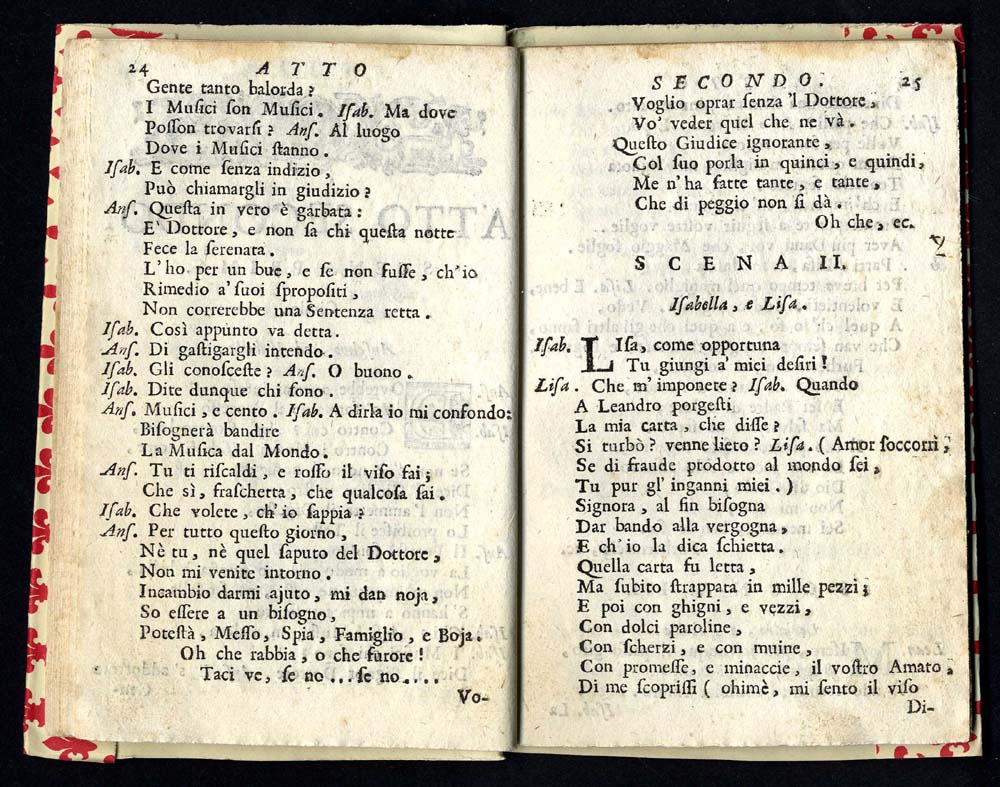 24 ATTO
Gente tanto balorda ?
I Muſici ſon Muſici. Iſab. Ma dove
Poſſon trovarſi ? Anſ. Al luogo
Dove i Muſici ſtanno.
Iſab. E come ſenza indizio,
Può chiamargli in giudizio ?
Anſ. Queſta in vero è garbata :
E' Dottore, e non ſa chi queſta notte
Fece la ſerenata.
L'ho per un bue, e ſe non fuſſe, ch'io
Rimedio a' ſuoi ſpropoſiti,
Non correrebbe una Sentenza retta.
Iſab. Così appunto va detta.
Anſ. Di gaſtigargli intendo.
Iſab. Gli conoſceſte ? Anſ. O buono.
Iſab. Dite dunque chi ſono.
Anſ. Muſici, e cento. Iſab. A dirla io mi confondo:
Biſognerà bandire
La Muſica dal Mondo.
Anſ. Tu ti riſcaldi, e roſſo il viſo fai;
Che sì, fraſchetta, che qualcoſa ſai.
Iſab. Che volete, ch'io ſappia ?
Anſ. Per tutto queſto giorno,
Nè tu, nè quel ſaputo del Dottore,
Non mi venite intorno.
Incambio darmi ajuto, mi dan noja,
So eſſere a un biſogno,
Poteſtà, Meſſo, Spia, Famiglio, e Boja.
Oh che rabbia, o che furore !
Taci ve, ſe no ... ſe no ....
Vo-
SECONDO. 25
Voglio oprar ſenza 'l Dottore,
Vo' veder quel che ne và.
Queſto Giudice ignorante,
Col ſuo porla in quinci, e quindi,
Me n'ha fatte tante, e tante,
Che di peggio non ſi dà.
Oh che, ec.
SCENA II.
Iſabella, e Liſa.
Iſab. LIſa, come opportuna
Tu giungi a' miei deſiri !
Liſa. Che m'imponete ? Iſab. Quando
A Leandro porgeſti
La mia carta, che diſſe ?
Si turbò ? venne lieto ? Liſa. ( Amor ſoccorri,
Se di fraude prodotto al mondo ſei,
Tu pur gl'inganni miei. )
Signora, al fin biſogna
Dar bando alla vergogna,
E ch'io la dica ſchietta.
Quella carta fu letta,
Ma ſubito ſtrappata in mille pezzi;
E poi con ghigni, e vezzi,
Con dolci paroline,
Con ſcherzi, e con muine,
Con promeſſe, e minaccie, il voſtro Amato,
Di me ſcopriſſi ( ohimè, mi ſento il viſo
Di-